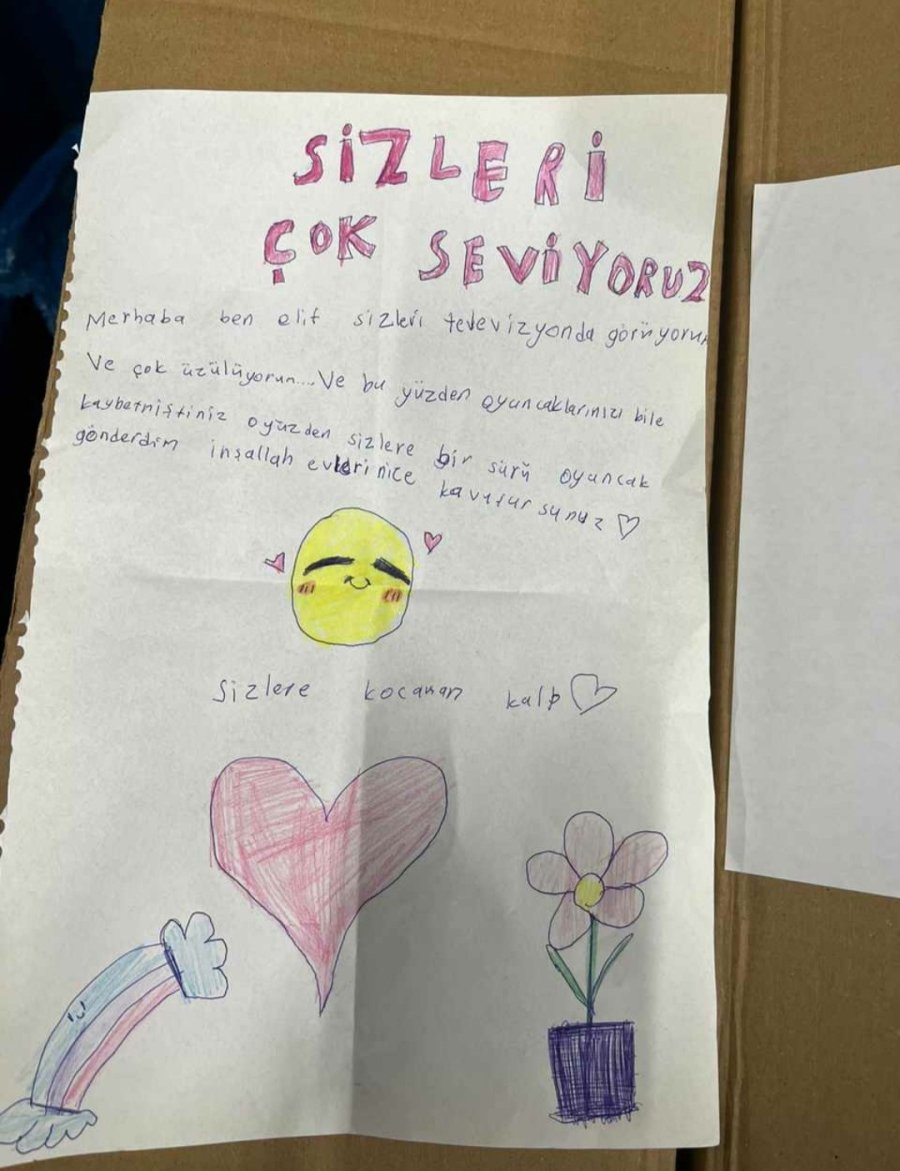 SİZLERİ
ÇOK SEVİYORUZ
Merhaba ben elif sizleri televizyonda görüyorum
Ve çok üzülüyorum... Ve bu yüzden oyuncaklarınızı bile
kaybetmiştiniz oyüzden sizlere bir sürü oyuncak
gönderdim inşallah evlerinize kavuşursunuz ♡
Sizlere kocaman kalp ♡